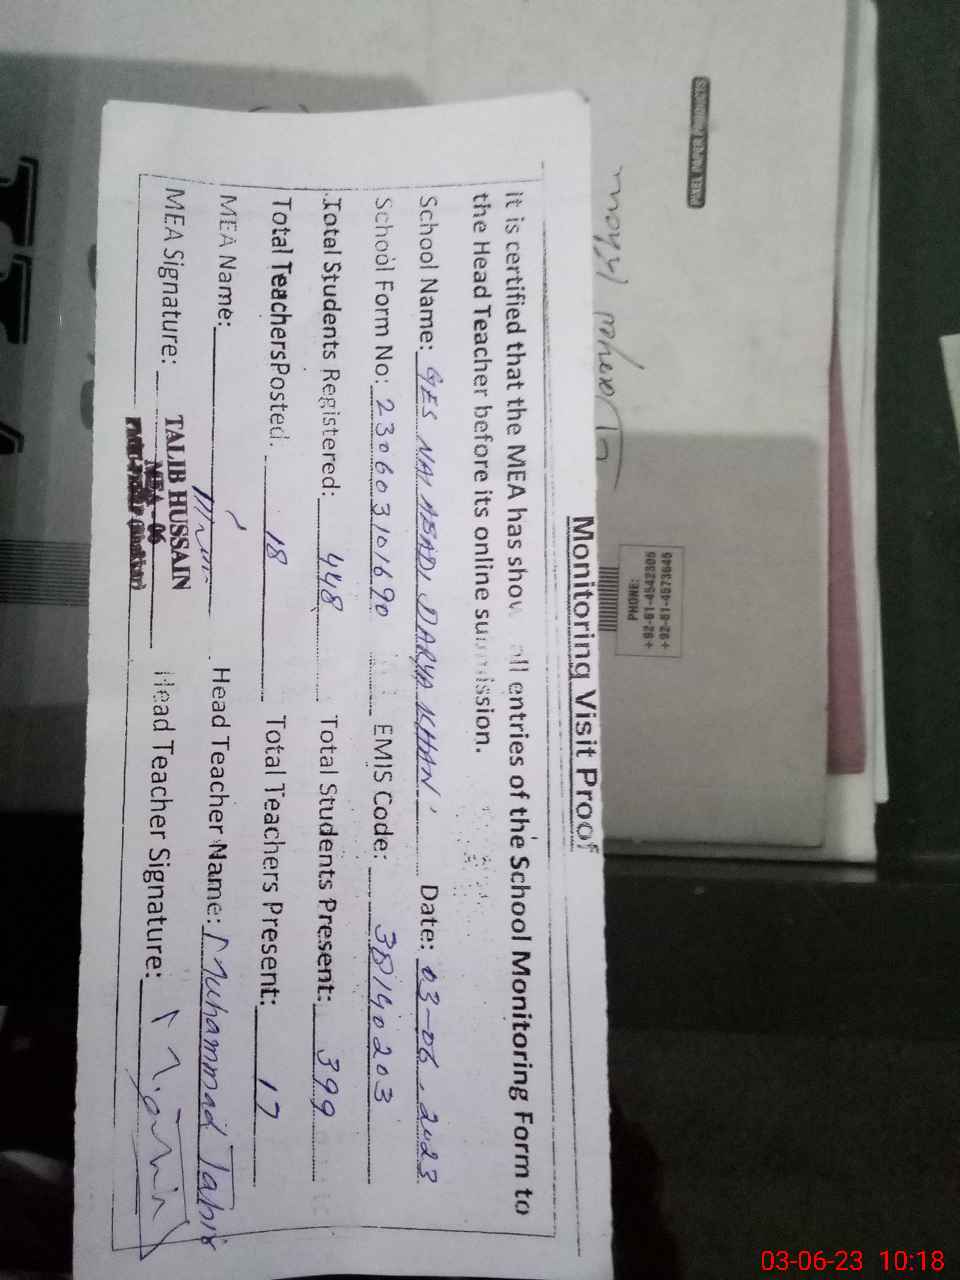 Monitoring Visit Proof
It is certified that the MEA has show all entries of the School Monitoring Form to
the Head Teacher before its online submission.
School Name: GES NAI ABADI DARYA KHAN Date: 03-06-2023
School Form No: 230603101690 EMIS Code: 38140203
Total Students Registered: 448 Total Students Present: 399
Total Teachers Posted: 18 Total Teachers Present: 17
MEA Name: Head Teacher Name: Muhammad Tahir
MEA Signature: Head Teacher Signature:
TALIB HUSSAIN
MEA - 06
PIXEL PAPER PRODUCTS
PHONE:
+92-61-4542305
+92-61-4573645
03-06-23 10:18